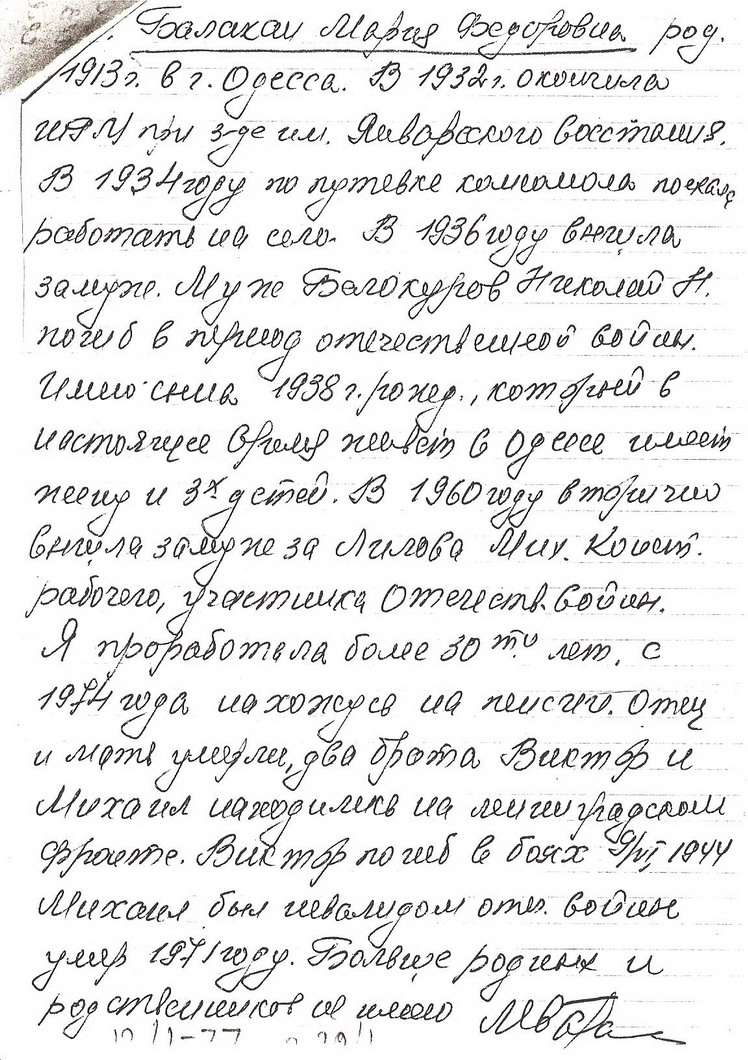 Балакан Мария Федоровна род.
1913г. в г. Одесса. В 1932г. окончила
при з-де им. Январского восстания.
В 1934 году по путевке комсомола поехала
работать на село. В 1936 году вышла
замуж. Муж Белокуров Николай Н.
погиб в период отечественной войны.
Имею сына 1938 г. рожд., который в
настоящее время живет в Одессе имеет
жену и 3х детей. В 1960 году вторично
вышла замуж за Лилова Мих. Конст.
рабочего, участника Отечеств. войны.
Я проработала более 30ти лет, с
1974 года нахожусь на пенсии. Отец
и мать умерли, два брата Виктор и
Михаил находились на ленинградском
фронте. Виктор погиб в боях 9/VI 1944
Михаил был инвалидом отеч. войны
умер 1971 году. Больше родных и
родственников не имею